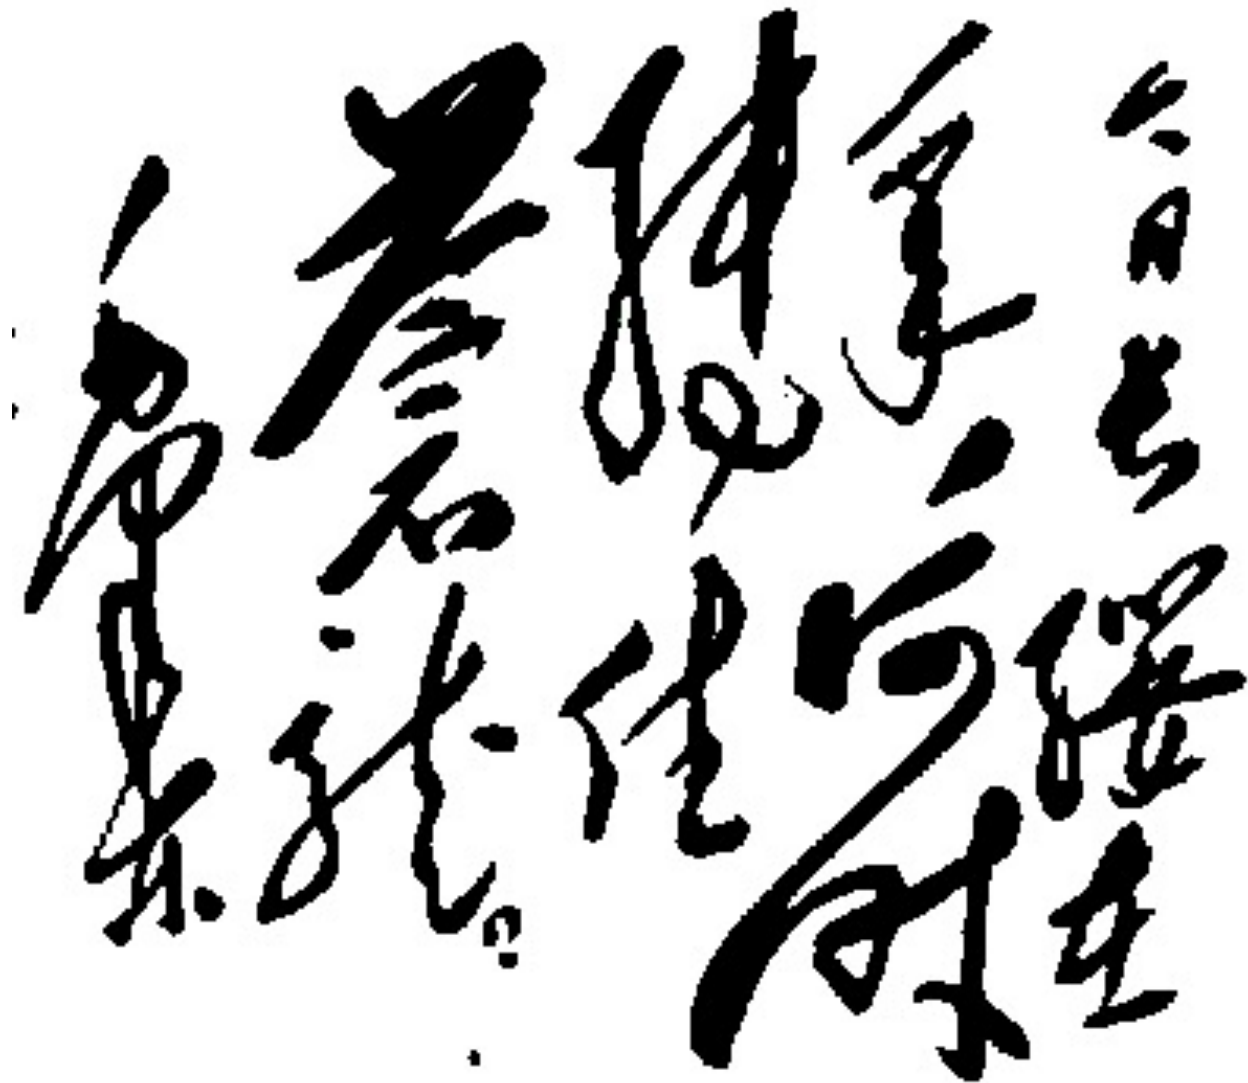 今日長纓在
手,何時
縛住
蒼龍?
毛澤東